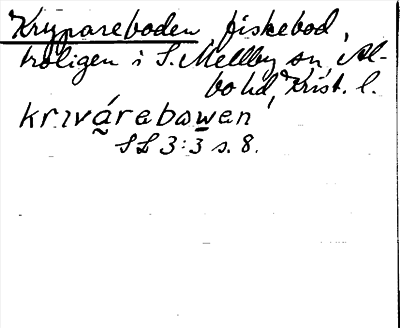 Krypareboden, fiskebod,
troligen i S. Mellby sn, Al-
bo hd, Krist. l.
krɪvárebawen
SL 3:3 s. 8.